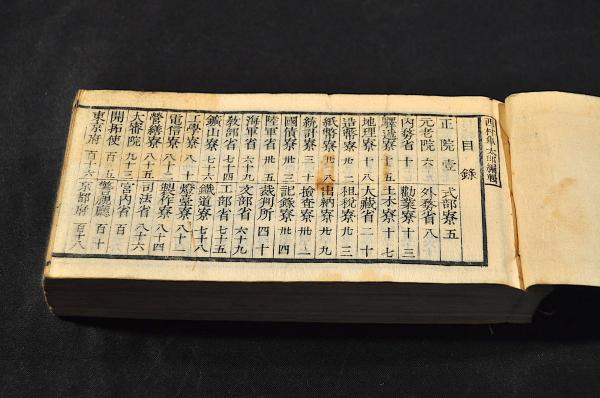 西村隼太郎編輯
目錄
正院 壹 式部寮 五
元老院 六 外務省 八
內務省 十 勸業寮 十三
驛遞寮 十五 土木寮 十七
地理寮 十八 大藏省 二十
造幣寮 租税寮
紙幣寮 出納寮
統計寮 三十 檢査寮
國債寮 卅三 記錄寮 卅四
陸軍省 卅五 裁判所 四十
海軍省 六十 文部省 六十九
敎部省 七十四 工部省 七十五
鑛山寮 七十六 鐵道寮 七十八
工學寮 八十 燈臺寮 八十一
電信寮 八十二 製作寮
營繕寮 八十五 司法省 八十六
大審院 九十三 宮內省 百
開拓使 百五 警視廳 百十
東京府 百十六 京都府 百十八